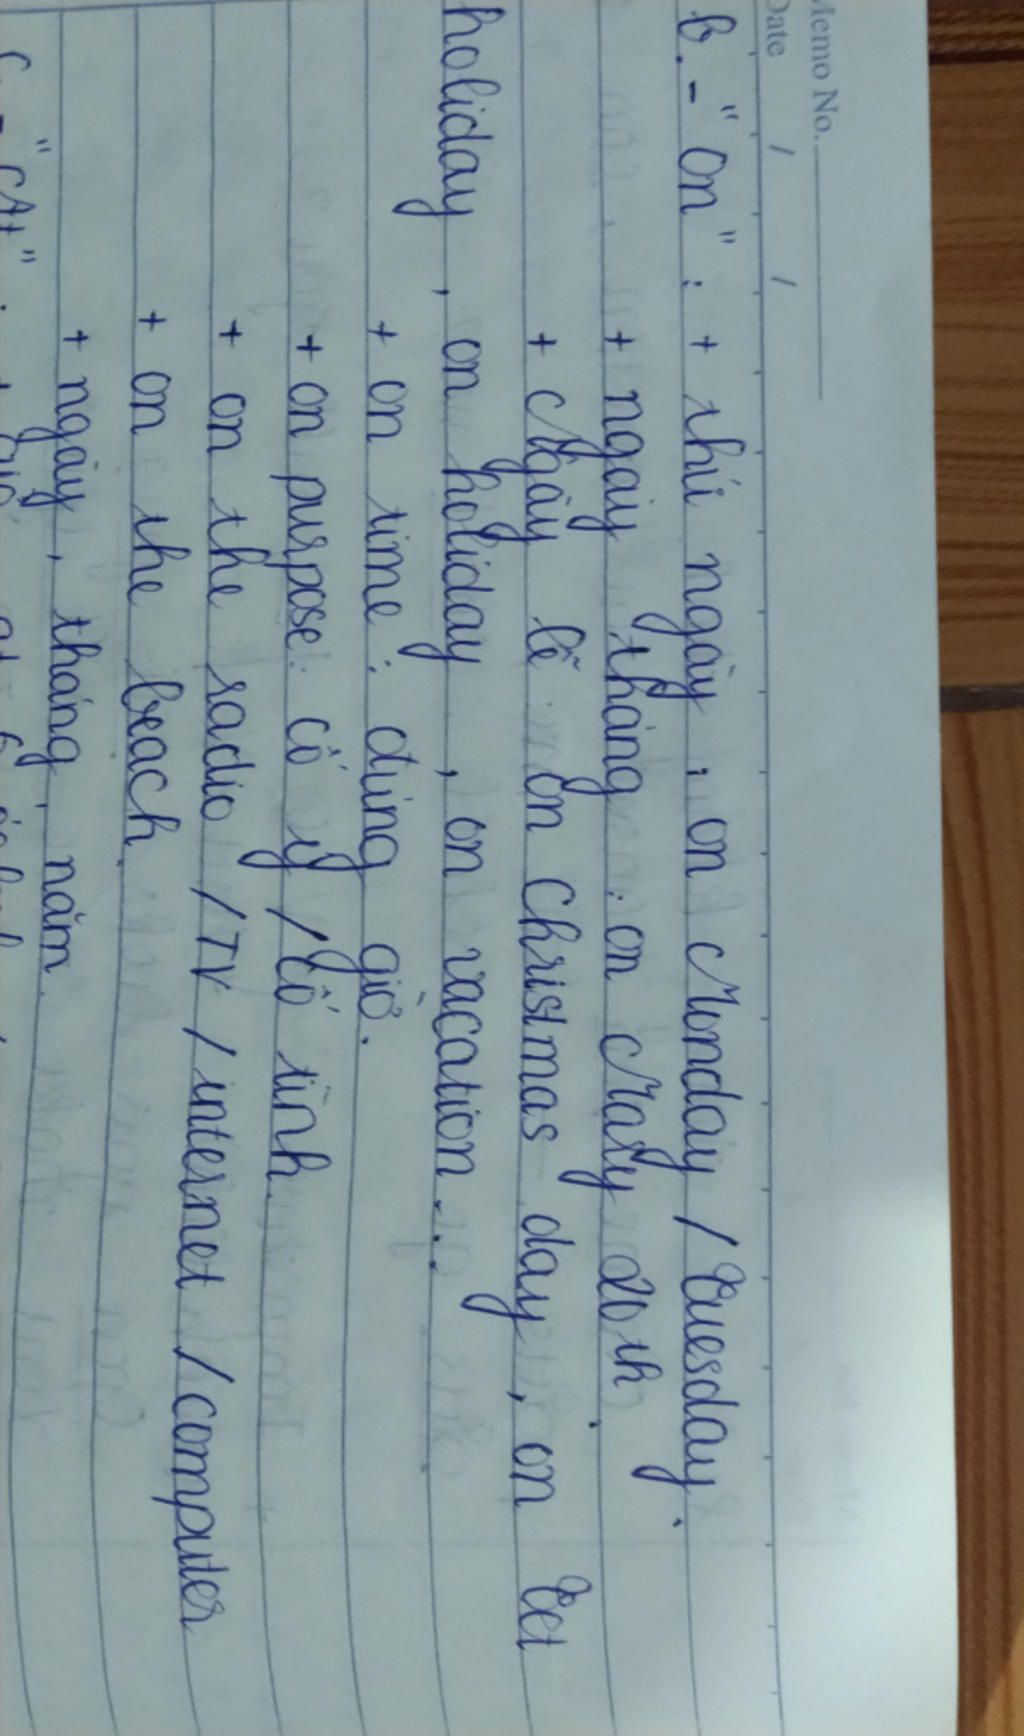 Memo No.
Date / /
b. - "On" : + thứ ngày : on Monday / Tuesday.
+ ngày tháng : on May 20th.
+ Ngày lễ : on Christmas day, on Tet
holiday, on holiday, on vacation...
+ on time : đúng giờ.
+ on purpose: cố ý / cố tình.
+ on the radio / TV / internet / computer
+ on the beach.
+ ngày, tháng, năm.
"At" :